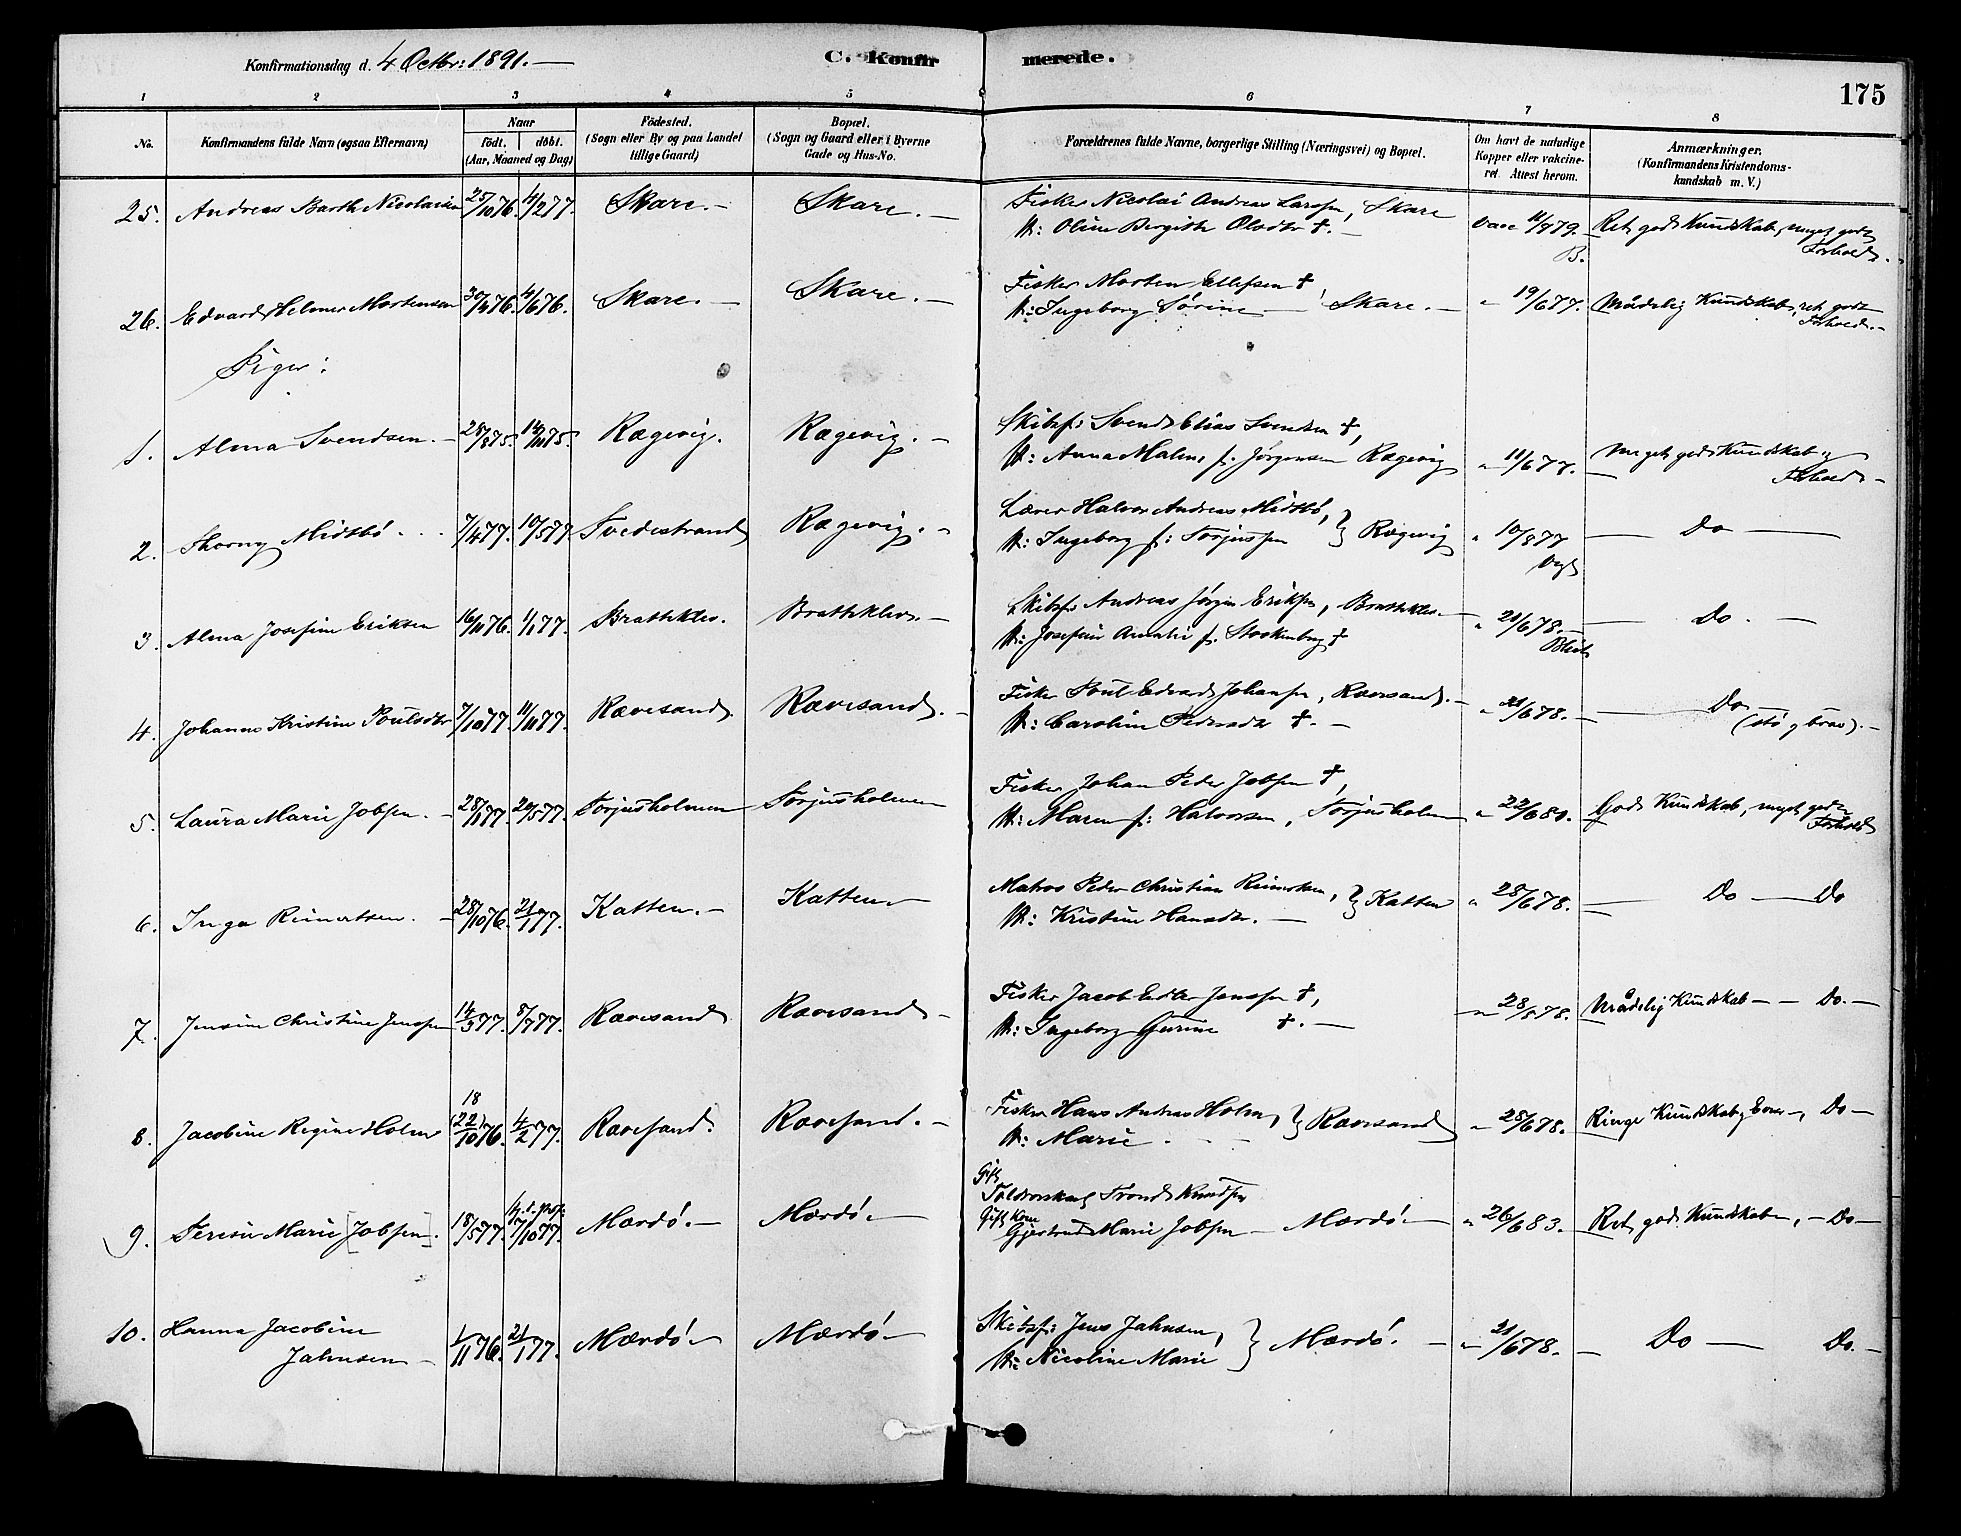 Konfirmationsdag d. 4 Octbr: 1891. —
C. Konfirmerede.
175
1 2 3 4 5 6 7 8
No.
Konfirmandens fulde Navn (ogsaa Efternavn)
Naar
födt. döbt.
(Aar, Maaned og Dag)
Födested.
(Sogn eller By og paa Landet
tillige Gaard)
Bopæl.
(Sogn og Gaard eller i Byerne
Gade og Hus-No.
Forældrenes fulde Navne, borgerlige Stilling (Næringsvei) og Bopæl.
Om havt de naturlige
Kopper eller vakcine-
ret. Attest herom.
Anmærkninger.
(Konfirmandens Kristendoms-
kundskab m. V.)
25. Andreas Barth Nicolaisen 25/10 76. 4/2 77. Skare. — Skare. — Fisker Nicolai Andreas Larsen, Skare
H: Oline Bergitte Olsdtr †. — Vacc 11/9 79. B. Ret god Kundskab, meget godt
Forhold. —
26. Edvard Helmer Mortensen 30/4 76. 4/6 76. Skare. — Skare. — Fisker Morten Ellefsen †
H: Ingeborg Sørine — Skare. — " 19/6 77. Mådelig Kundskab, ret godt
Forhold. —
Piger:
1. Alma Svendsen. — 28/8 75. 14/11 75. Rægevig. Rægevig. — Skibsf: Svend Elias Svendsen †,
H: Anna Malene f: Jørgensen Rægevig " 11/6 77. — Meget god Kundskab og
Forhold —
2. Thorny Midtbö 7/4 77. 10/5 77 Tvedestrand Rægevig. — Lærer Halvor Andreas Midtbö,
H: Ingeborg f: Torjussen } Rægevig " 10/8 77 — Do —
3. Alma Josefine Eriksen 16/11 76. 1/1 77. Brattekleo. Bratteklev. — Skibsf: Andreas Jörgen Eriksen, Bratteklev —
H: Josefine Amalie f. Stockenberg † " 21/6 78. — — Do. —
4. Johanne Kristine Poulsdtr 7/10 77. 11/11 77. Rævesand. Rævesand. — Fisker Poul Edvard Johansen, Rævesand. —
H: Caroline Pedersdtr †. — " 21/6 78. — — Do —
(stø og brav). —
5. Laura Marie Jobsen. — 28/1 77. 20/5 77. Torjusholmen Torjusholmen Fisker Johan Peder Jobsen †,
H: Maren f: Halvorsen, Torjusholm " 22/6 80. God Kundskab, meget godt
Forhold
6. Inga Reinertsen. — 28/10 76. 21/1 77. Katten. — Katten — Matros Peder Christian Reinertsen,
H: Kristine Hansdtr. — } Katten " 28/6 78. — Do — Do
7. Jensine Christine Jensen 14/3 77. 8/7 77. Rævesand Rævesand — Fisker Jacob Edler Jenssen †,
H: Ingeborg Gurine †. — — " 28/8 78. Mådelig Kundskab — — Do. —
8. Jacobine Regine Holm 18 (22)/10 76. 4/2 77. Ravesand. Rævesand. — Fisker Hans Andreas Holm,
H: Marie } Rævesand — 28/6 78. Ringe Kundskab, Do —
9. Teresie Marie [Jobsen]. 18/5 77. 7/10 77. Mærdö. — Mærdö — Gift
Toldvorskarl Trond Knudsen
Gift Kone
Gjertrud Marie Jobsen — Mærdö — " 26/6 83. Ret god Kundskab, — Do —
10. Hanna Jacobine
Jahnsen — 1/11 76. 21/1 77. Mærdö — Mærdö — Skibsf: Jens Jahnsen,
H: Nicoline Marie } Mærdö. — " 21/6 78. — Do — Do. —